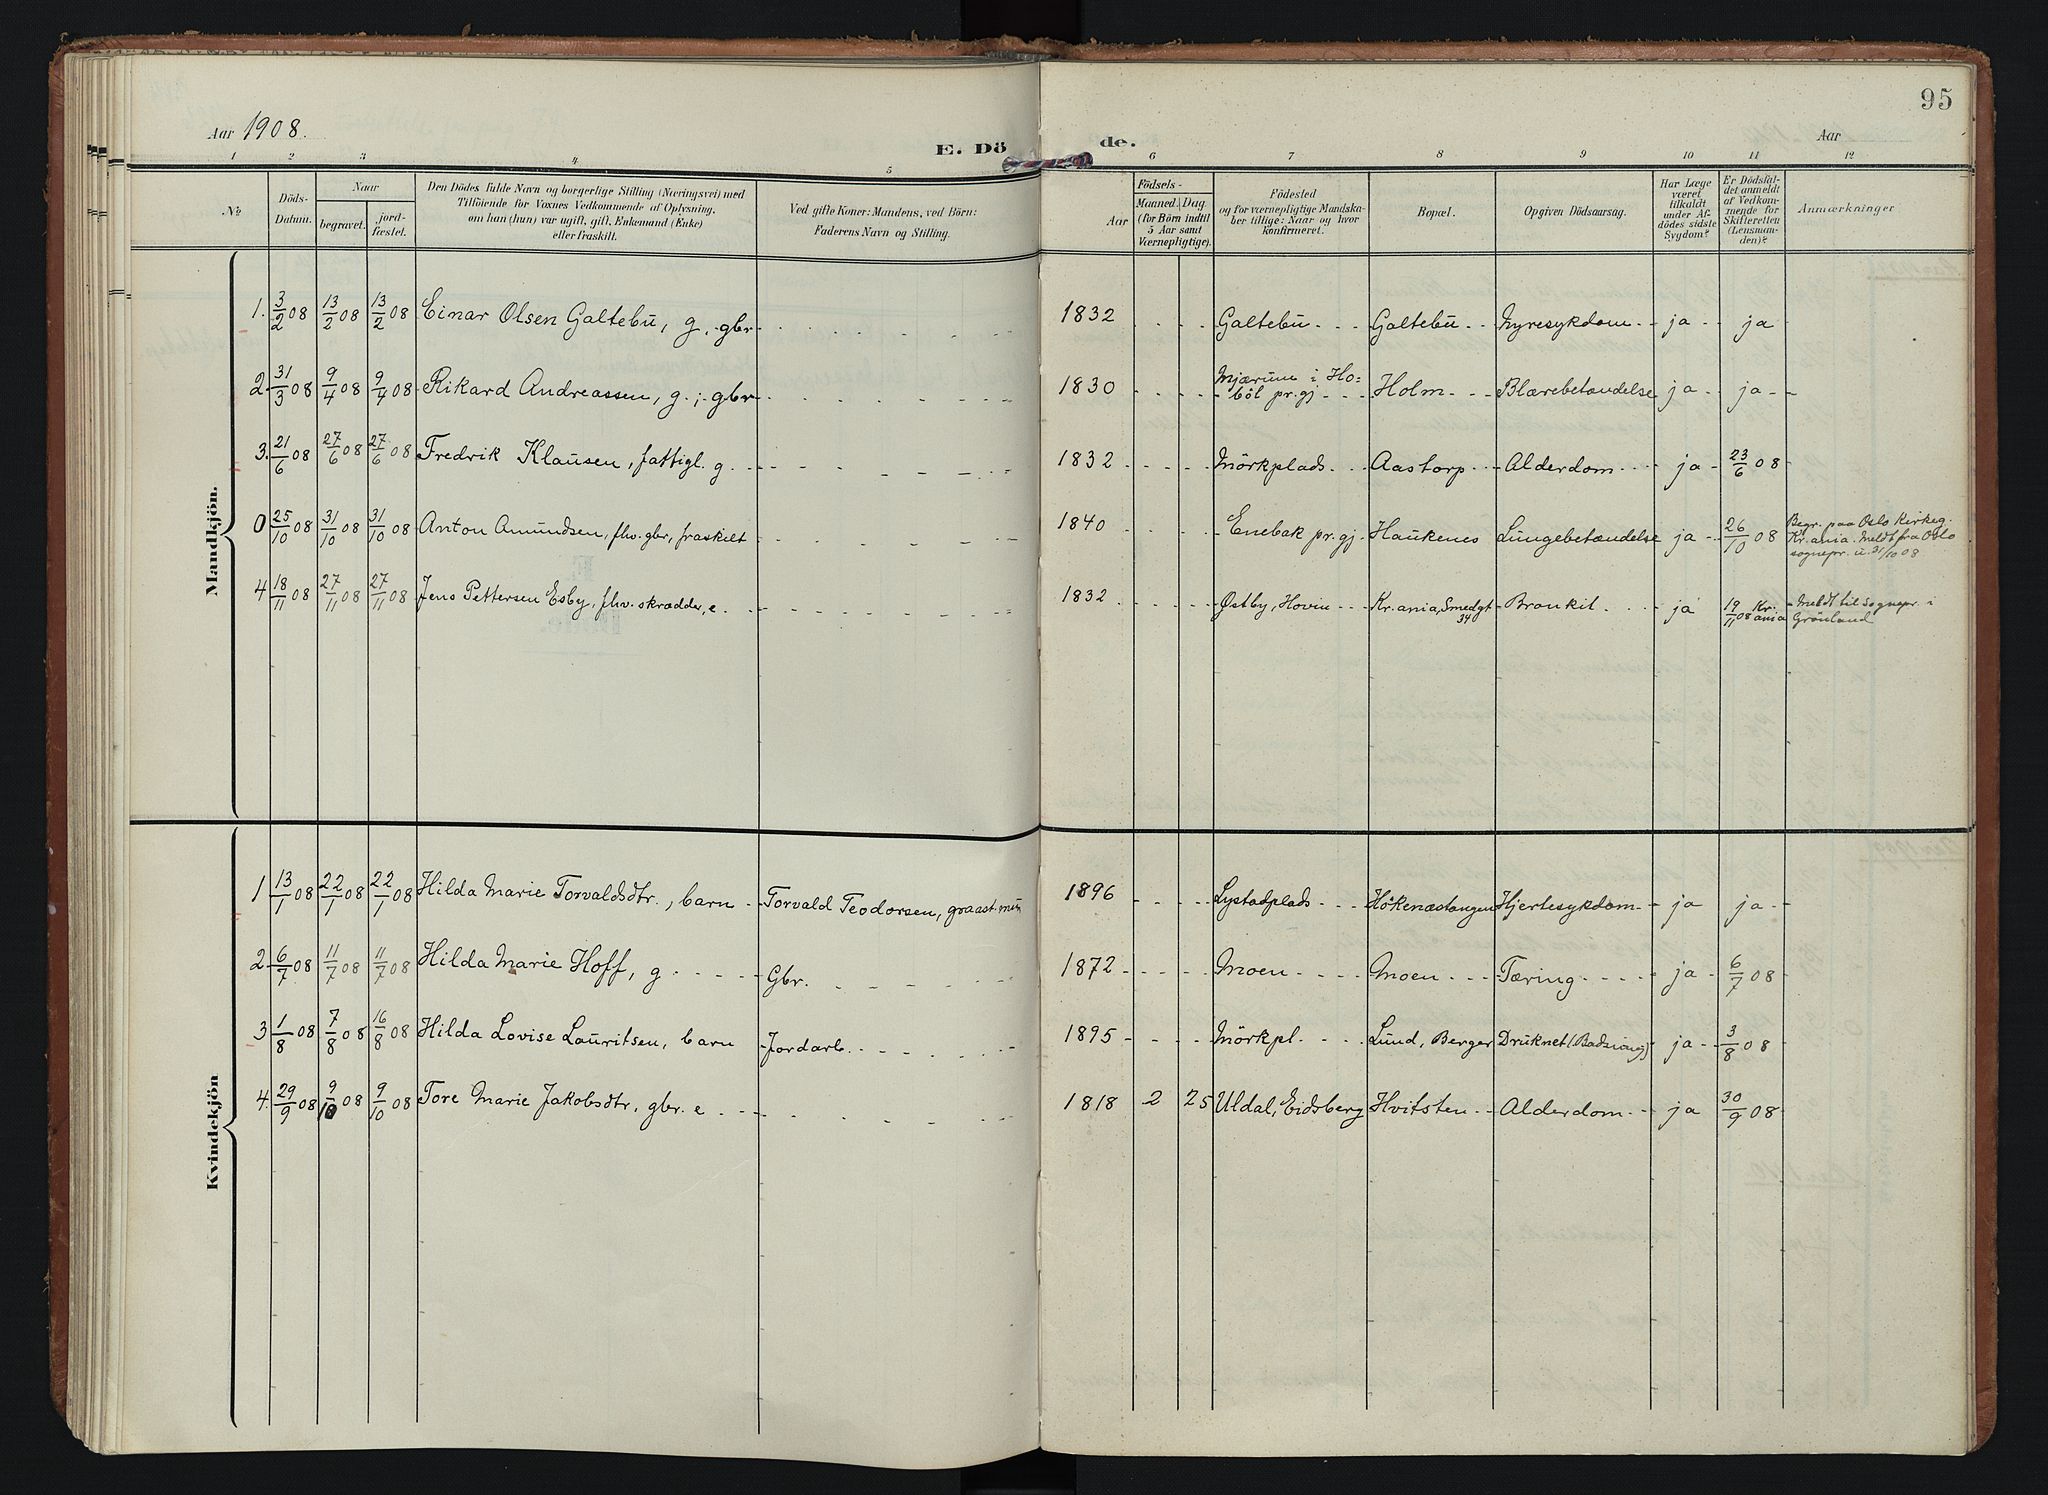 95
Aar 1908.
E. Dö de.
Aar
1 2 3 4 5 6 7 8 9 10 11 12
No
Döds-
Datum.
Naar
begravet.
jord-
fæstet.
Den Dödes fulde Navn og borgerlige Stilling (Næringsvei) med
Tilföiende for Voxnes Vedkommende af Oplysning,
om han (hun) var ugift, gift, Enkemand (Enke)
eller fraskilt.
Ved gifte Koner: Mandens, ved Börn:
Faderens Navn og Stilling.
Födsels-
Aar
Maaned. Dag.
(for Börn indtil
5 Aar samt
Værnepligtige).
Födested
og for værnepligtige Mandska-
ber tillige: Naar og hvor
konfirmeret.
Bopæl.
Opgiven Dödsaarsag.
Har Læge
været
tilkaldt
under Af-
dödes sidste
Sygdom?
Er Dödsfal-
det anmeldt
af Vedkom-
mende for
Skifteretten
(Lensman-
den)?
Anmærkninger
Mandkjön.
1. 3/2 08 13/2 08 13/2 08 Einar Olsen Galtebu, g, gbr 1832 Galtebu Galtebu Nyresykdom ja ja
2. 31/3 08 9/4 08 9/4 08 Rikard Andreassen, g., gbr 1830 Mjærum i Ho-
böl pr.gj Holm Blærebetændelse ja ja
3. 21/6 08 27/6 08 27/6 08 Fredrik Klausen, fattigl. g 1832 Mörkplads Aastorp Alderdom ja 23/6 08
0 25/10 08 31/10 08 31/10 08 Anton Amundsen, fhv. gbr, fraskilt 1840 Enebak pr.gj Haukenes Lungebetændelse ja 26/10 08 Begr. paa Oslo Kirkeg.
Kr.ania. Meldt fra Oslo
sognepr. u. 31/10 08
4 18/11 08 27/11 08 27/11 08 Jens Pettersen Esby, fhv. skrædder, e 1832 Østby, Hovin Kr.ania, Smedgt
34 Bronkit ja 19/11 08 Kr.
ania Meldt til sognepr. i
Grönland
Kvindekjön
1 13/1 08 22/1 08 22/1 08 Hilda Marie Torvaldsdtr., barn Torvald Teodorsen, graast. min 1896 Lystadplads Hökenæstangen Hjertesykdom ja ja
2 6/7 08 11/7 08 11/7 08 Hilda Marie Hoff, g Gbr. 1872 Moen Moen Tæring ja 6/7 08
3 1/8 08 7/8 08 16/8 08 Hilda Lovise Lauritsen, barn Jordarb. 1895 Mörkpl. Lund, Berger Druknet ja 3/8 08
4. 29/9 08 9/10 08 9/10 08 Tore Marie Jakobsdtr, gbr. e 1818 2 25 Uldal, Eidsberg Hvitsten Alderdom ja 30/9 08